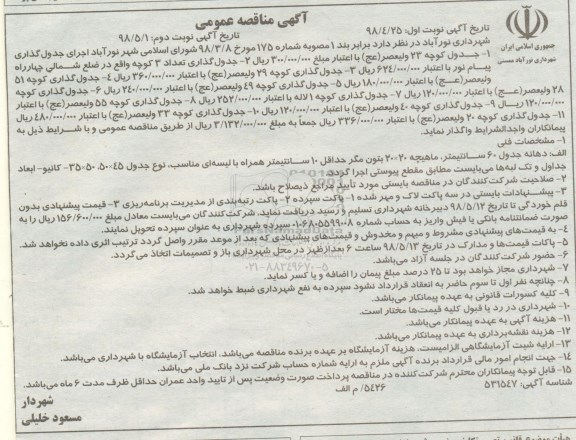 آگهی مناقصه عمومی
تاریخ آگهی نوبت اول: ۹۸/۴/۲۵
تاریخ آگهی نوبت دوم: ۹۸/۵/۱
جمهوری اسلامی ایران
شهرداری نورآباد ممسنی
شهرداری نورآباد در نظر دارد برابر بند ۱ مصوبه شماره ۱۷۵ مورخ ۹۸/۳/۸ شورای اسلامی شهر نورآباد اجرای جدول‌گذاری
۱- جدول کوچه ۲۳ ولیعصر(عج) با اعتبار مبلغ ۳۰۰/۰۰۰/۰۰۰ ریال ۲- جدول‌گذاری تعداد ۳ کوچه واقع در ضلع شمالی چهارراه
پیام نور با اعتبار ۶۲۴/۰۰۰/۰۰۰ ریال ۳- جدول‌گذاری کوچه ۲۹ ولیعصر(عج) با اعتبار ۳۶۰/۰۰۰/۰۰۰ ریال ۴- جدول‌گذاری کوچه ۵۱
ولیعصر(عج) با اعتبار ۱۸۰/۰۰۰/۰۰۰ ریال ۵- جدول‌گذاری کوچه ۴۹ ولیعصر(عج) با اعتبار ۲۴۰/۰۰۰/۰۰۰ ریال ۶- جدول‌گذاری کوچه
۲۸ ولیعصر(عج) با اعتبار ۱۲۰/۰۰۰/۰۰۰ ریال ۷- جدول‌گذاری کوچه ۱ لاله با اعتبار ۲۵۲/۰۰۰/۰۰۰ ریال ۸- جدول‌گذاری کوچه ۵۵ ولیعصر(عج) با اعتبار
۱۲۰/۰۰۰/۰۰۰ ریال ۹- جدول‌گذاری کوچه ۴۰ ولیعصر(عج) با اعتبار ۱۲۰/۰۰۰/۰۰۰ ریال ۱۰- جدول‌گذاری کوچه ۳۳ ولیعصر(عج) با اعتبار ۴۸۰/۰۰۰/۰۰۰ ریال
۱۱- جدول‌گذاری کوچه ۲۰ ولیعصر(عج) با اعتبار ۳۳۶/۰۰۰/۰۰۰ ریال جمعاً به مبلغ ۳/۱۳۲/۰۰۰/۰۰۰ ریال از طریق مناقصه عمومی و با شرایط ذیل به
پیمانکاران واجدالشرایط واگذار نماید.
۱- مشخصات فنی
الف: دهانه جدول ۶۰ سانتیمتر، ماهیچه ۲۰×۲۰ بتون مگر حداقل ۱۰ سانتیمتر همراه با لیسه‌ای مناسب، نوع جدول ۴۵×۵۰، ۵۰×۳۵- کانیو- ابعاد
جداول و تک لبه‌ها می‌بایست مطابق مقطع پیوستی اجرا گردد.
۲- صلاحیت شرکت‌کنندگان در مناقصه بایستی مورد تأیید مراجع ذیصلاح باشد.
۳- پیشنهادات بایستی در سه پاکت لاک و مهر شده ۱- پاکت سپرده ۲- پاکت رتبه‌بندی از مدیریت برنامه‌ریزی ۳- قیمت پیشنهادی بدون
قلم خوردگی تا تاریخ ۹۸/۵/۱۲ دبیرخانه شهرداری تسلیم و رسید دریافت نماید. شرکت‌کنندگان می‌بایست معادل مبلغ ۱۵۶/۶۰۰/۰۰۰ ریال را به
صورت ضمانتنامه بانکی یا فیش واریز به حساب شماره ۰۱۰۶۸۰۵۵۹۹۰۰۸ سپرده شهرداری به عنوان سپرده تحویل نمایند.
۴- به قیمت‌های پیشنهادی مشروط و مبهم و مخدوش و قیمت‌های پیشنهادی که بعد از موعد مقرر واصل گردد ترتیب اثری داده نخواهد شد.
۵- پاکات قیمت‌ها و مدارک در تاریخ ۹۸/۵/۱۳ ساعت ۶ بعدازظهر در محل شهرداری باز و تصمیمات اتخاذ می‌گردد.
۶- حضور شرکت‌کنندگان در جلسه آزاد می‌باشد.
۷- شهرداری مجاز خواهد بود تا ۲۵ درصد مبلغ پیمان را اضافه و یا کسر نماید.
۸- چنانچه نفر اول تا سوم حاضر به انعقاد قرارداد نشود سپرده به نفع شهرداری ضبط خواهد شد.
۹- کلیه کسورات قانونی به عهده پیمانکار می‌باشد.
۱۰- شهرداری در رد یا قبول کلیه قیمت‌ها مختار است.
۱۱- هزینه آگهی به عهده پیمانکار می‌باشد.
۱۲- هزینه نقشه‌برداری به عهده پیمانکار می‌باشد.
۱۳- ارایه شیت آزمایشگاهی الزامیست، هزینه آزمایشگاه بر عهده برنده مناقصه می‌باشد، انتخاب آزمایشگاه با شهرداری می‌باشد.
۱۴- جهت انجام امور مالی قرارداد برنده آگهی ملزم به ارایه شماره حساب شرکت نزد بانک ملی می‌باشد.
۱۵- قابل توجه پیمانکاران محترم شرکت‌کننده در مناقصه پرداخت صورت وضعیت پس از تایید واحد عمران حداقل ظرف مدت ۶ ماه می‌باشد.
شناسه آگهی: ۵۳۱۵۴۷
۵۴۲۶/ م الف
شهردار
مسعود خلیلی
۰۲۱-۸۸۳۴۹۶۷۰-۵